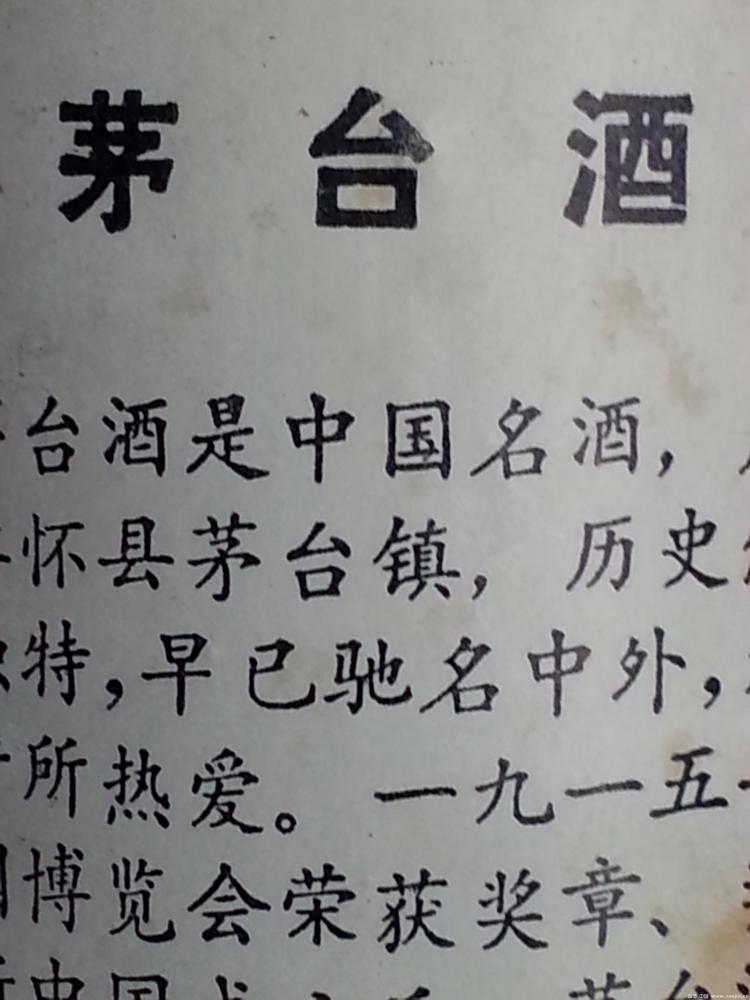 茅台酒
台酒是中国名酒，
怀县茅台镇，历史
特，早已驰名中外，
所热爱。一九一五
博览会荣获奖章、
中国成立后，茅台